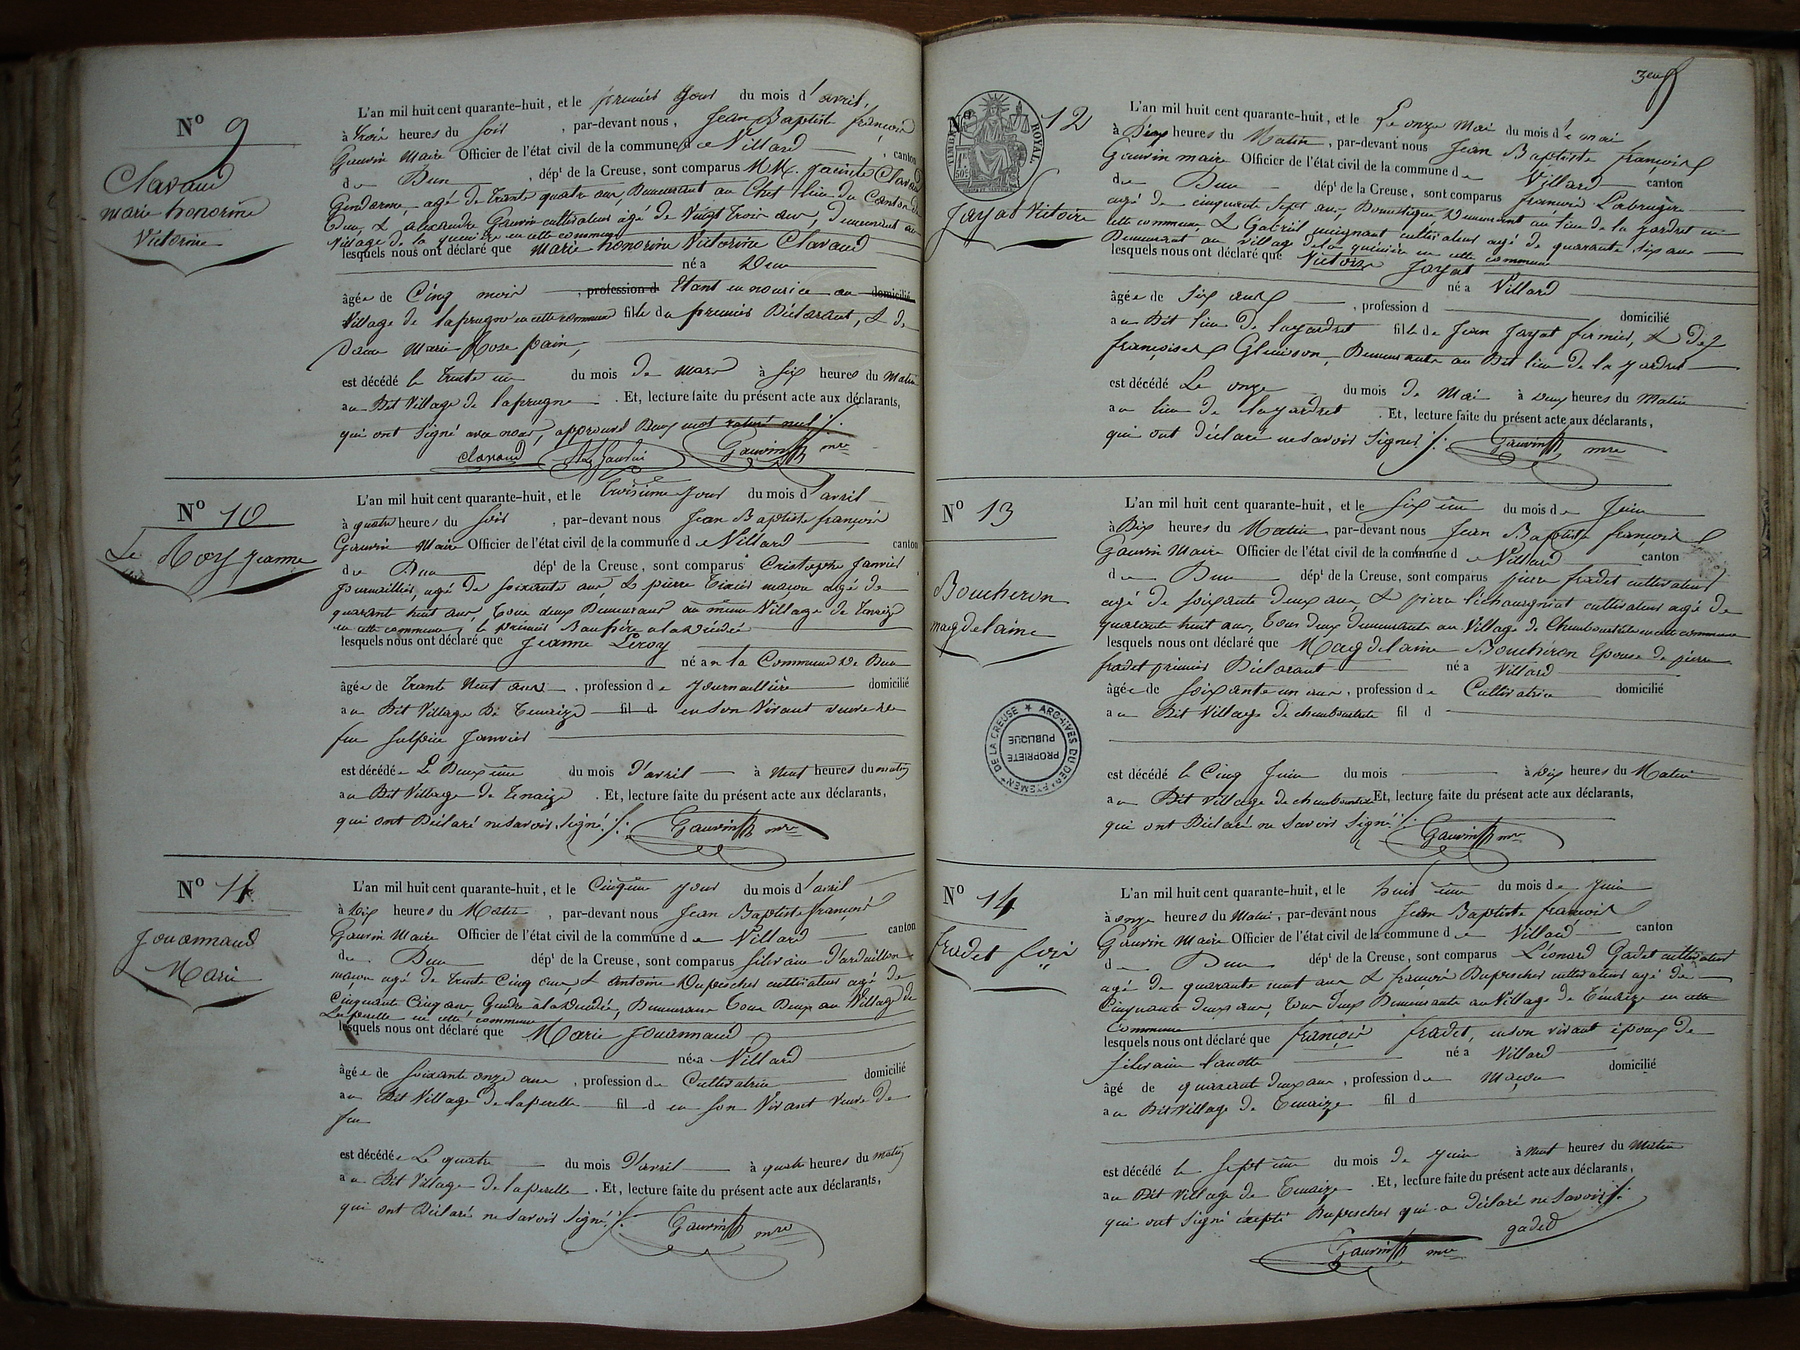 Nº 9
Clavaud
marie honorine
Victorine
L'an mil huit cent quarante-huit, et le premier Jour du mois d'avril,
à trois heures du soir, par-devant nous, Jean Baptiste françois
Gauvin Maire Officier de l'état civil de la commune de Villard canton
de Dun, dép<sup>t</sup> de la Creuse, sont comparus MM. jacinte Clavaud
Gendarme, agé de trante quatre ans, Demeurant au Chef lieu du Canton de
Dun, & alexandre Gauvin cultivateur agé de Vingt trois ans, demeurant au
Village de la en cette commune
lesquels nous ont déclaré que marie honorine Victorine Clavaud
né a Dun
âgée de Cinq mois, profession d Etant en nourice au domicilié
Village de laprugne en cette commune fille du premier Déclarant, & de
Dame Marie Rose pain,
est décédé le trente un du mois de mars à six heures du Matin
au Dit Village de laprugne. Et, lecture faite du présent acte aux déclarants,
qui ont signé avec nous, approuvé Deux mot rature nul ./.
Clavaud Gauvin mre
Nº 10
Le Roy jeanne
L'an mil huit cent quarante-huit, et le troisième Jour du mois d'avril
à quatre heures du soir, par-devant nous Jean Baptiste françois
Gauvin Maire Officier de l'état civil de la commune de Villard canton
de Dun dép<sup>t</sup> de la Creuse, sont comparus Cristophe Janvier
journallier, agé de soixante ans, & pierre maçon agé de
quarant huit ans, tous deux Demeurans au même Village de
en cette commune, le premier Baupère a la Décédée
lesquels nous ont déclaré que Jeanne Leroy
né a en la Commune de Dun
âgée de trante Neuf ans, profession de journallière domicilié
au Dit Village De fil d en son Vivant veuve de
feu Sulpice Janvier
est décédée Le Deuxième du mois d'avril à Neuf heures du matin
au Dit Village de. Et, lecture faite du présent acte aux déclarants,
qui ont Déclaré ne savoir signé ./. Gauvin mre
Nº 11
Jouannaud
Marie
L'an mil huit cent quarante-huit, et le Cinquième Jour du mois d'avril
à Dix heures du Matin, par-devant nous Jean Baptiste françois
Gauvin Maire Officier de l'état civil de la commune de Villard canton
de Dun dép<sup>t</sup> de la Creuse, sont comparus Silvain Darduillon
maçon agé de trente Cinq ans, & antoine Dupescher cultivateur agé de
Cinquante Cinq ans, Gendre à la Décédée, Demeurans tous Deux au Village de
Laperelle en cette commune
lesquels nous ont déclaré que Marie Jouannaud
né a Villard
âgée de soixante onze ans, profession de Cultivatrice domicilié
au Dit Village de laperelle fil d en son Vivant Veuve de
feu
est décédée Le quatre du mois d'avril à quatre heures du matin
au Dit Village de laperelle. Et, lecture faite du présent acte aux déclarants,
qui ont Déclaré ne savoir signé ./. Gauvin mre
Nº 12
TIMBRE ROYAL
Jayat Victoire
L'an mil huit cent quarante-huit, et le Le onze Mai du mois de mai
à Deux heures du Matin, par-devant nous Jean Baptiste françois
Gauvin maire Officier de l'état civil de la commune de Villard canton
de Dun dép<sup>t</sup> de la Creuse, sont comparus francois Labrugère
agé de cinquante sept ans, Domestique Demeurant au lieu de la yardret en
cette commune, & Gabriel cultivateur agé de quarante six ans
Demeurant au Village de la en cette commune
lesquels nous ont déclaré que Victoire Jayat
né a Villard
âgée de Six ans, profession d domicilié
au Dit lieu de layardret fille de Jean Jayat fermier, & de
françoise Glenisson, Demeurants au Dit lieu de la yardret
est décédé Le onze du mois de Mai à Deux heures du Matin
au lieu de layardret. Et, lecture faite du présent acte aux déclarants,
qui ont déclaré ne savoir signer ./. Gauvin mre
Nº 13
Boucheron
magdelaine
L'an mil huit cent quarante-huit, et le Sixième du mois de Juin
à Dix heures du Matin par-devant nous Jean Baptiste françois
Gauvin Maire Officier de l'état civil de la commune de Villard canton
de Dun dép<sup>t</sup> de la Creuse, sont comparus pierre fradet cultivateur
agé de soixante deux ans, & pierre cultivateur agé de
quarante huit ans, tous deux demeurants au Village de en cette commune
lesquels nous ont déclaré que Magdelaine Boucheron Epouse de pierre
fradet premier Déclarant né a Villard
âgée de soixante un ans, profession de Cultivatrice domicilié
au Dit Village de fil d
est décédé le Cinq Juin du mois à Dix heures du Matin
au Dit Village de Et, lecture faite du présent acte aux déclarants,
qui ont Déclaré ne savoir signé ./. Gauvin mre
ARCHIVES DU DEPARTEMENT DE LA CREUSE ★
PROPRIETE
PUBLIQUE
Nº 14
fradet
L'an mil huit cent quarante-huit, et le huitième du mois de Juin
à onze heures du Matin, par-devant nous Jean Baptiste francois
Gauvin Maire Officier de l'état civil de la commune de Villard canton
de Dun dép<sup>t</sup> de la Creuse, sont comparus Léonard Gadet cultivateur
agé de quarante neuf ans & francois Dupescher cultivateur agé de
Cinquante deux ans, tous deux Demeurants au Village de en cette
Commune
lesquels nous ont déclaré que françois fradet, en son vivant époux de
Silvaine né a Villard
âgé de quarant deux ans, profession de maçon domicilié
au Dit Village de fil d
est décédé le septième du mois de Juin à Neuf heures du Matin
au Dit Village de. Et, lecture faite du présent acte aux déclarants,
qui ont signé éxepté Dupescher qui a déclaré ne savoir ./.
Gauvin mre gaded